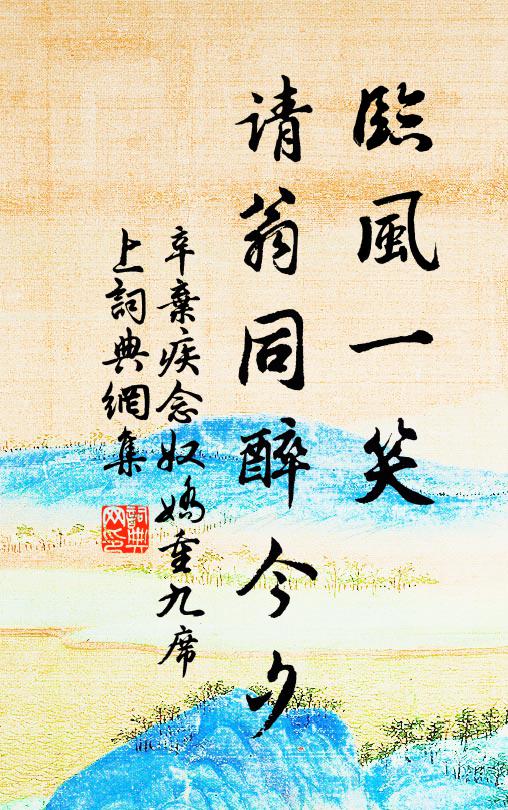 臨風一笑
请翁同醉今夕
辛棄疾念奴嬌重九席
上詞典網集
詞典
网印